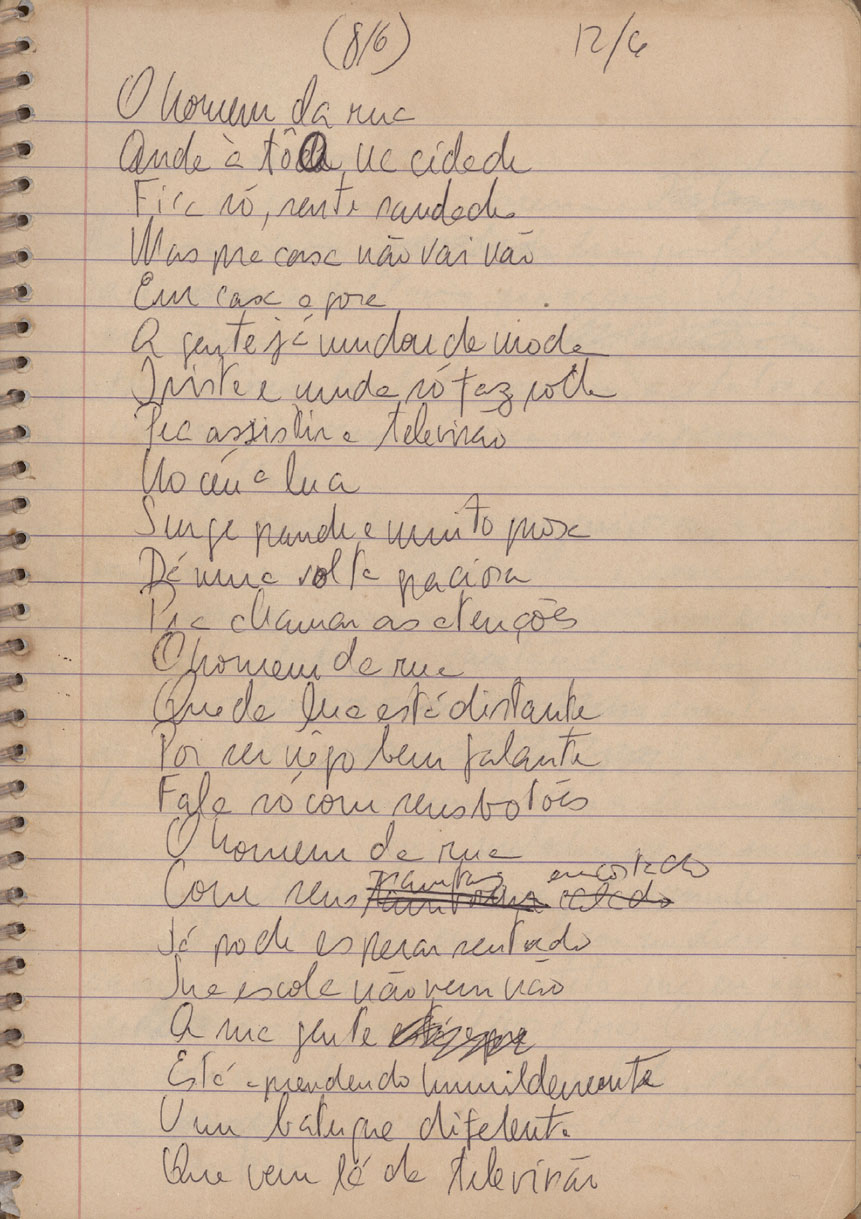 (8/6) 12/6
O homem da rua
Anda à tôa na cidade
Fica só, sente saudade
Mas pra casa não vai não
Em casa agora
A gente já mudou de moda
Triste e muda só faz roda
Pra assistir a televisão
No céu a lua
Surge grande e muito prosa
Dá uma volta graciosa
Pra chamar as atenções
O homem da rua
Que da lua está distante
Por ser nêgo bem falante
Fala só com seus botões
O homem da rua
Com seus encostado
Já pode esperar sentado
Sua escola não vem não
A sua gente
Está aprendendo humildemente
Um batuque diferente
Que vem lá da televisão